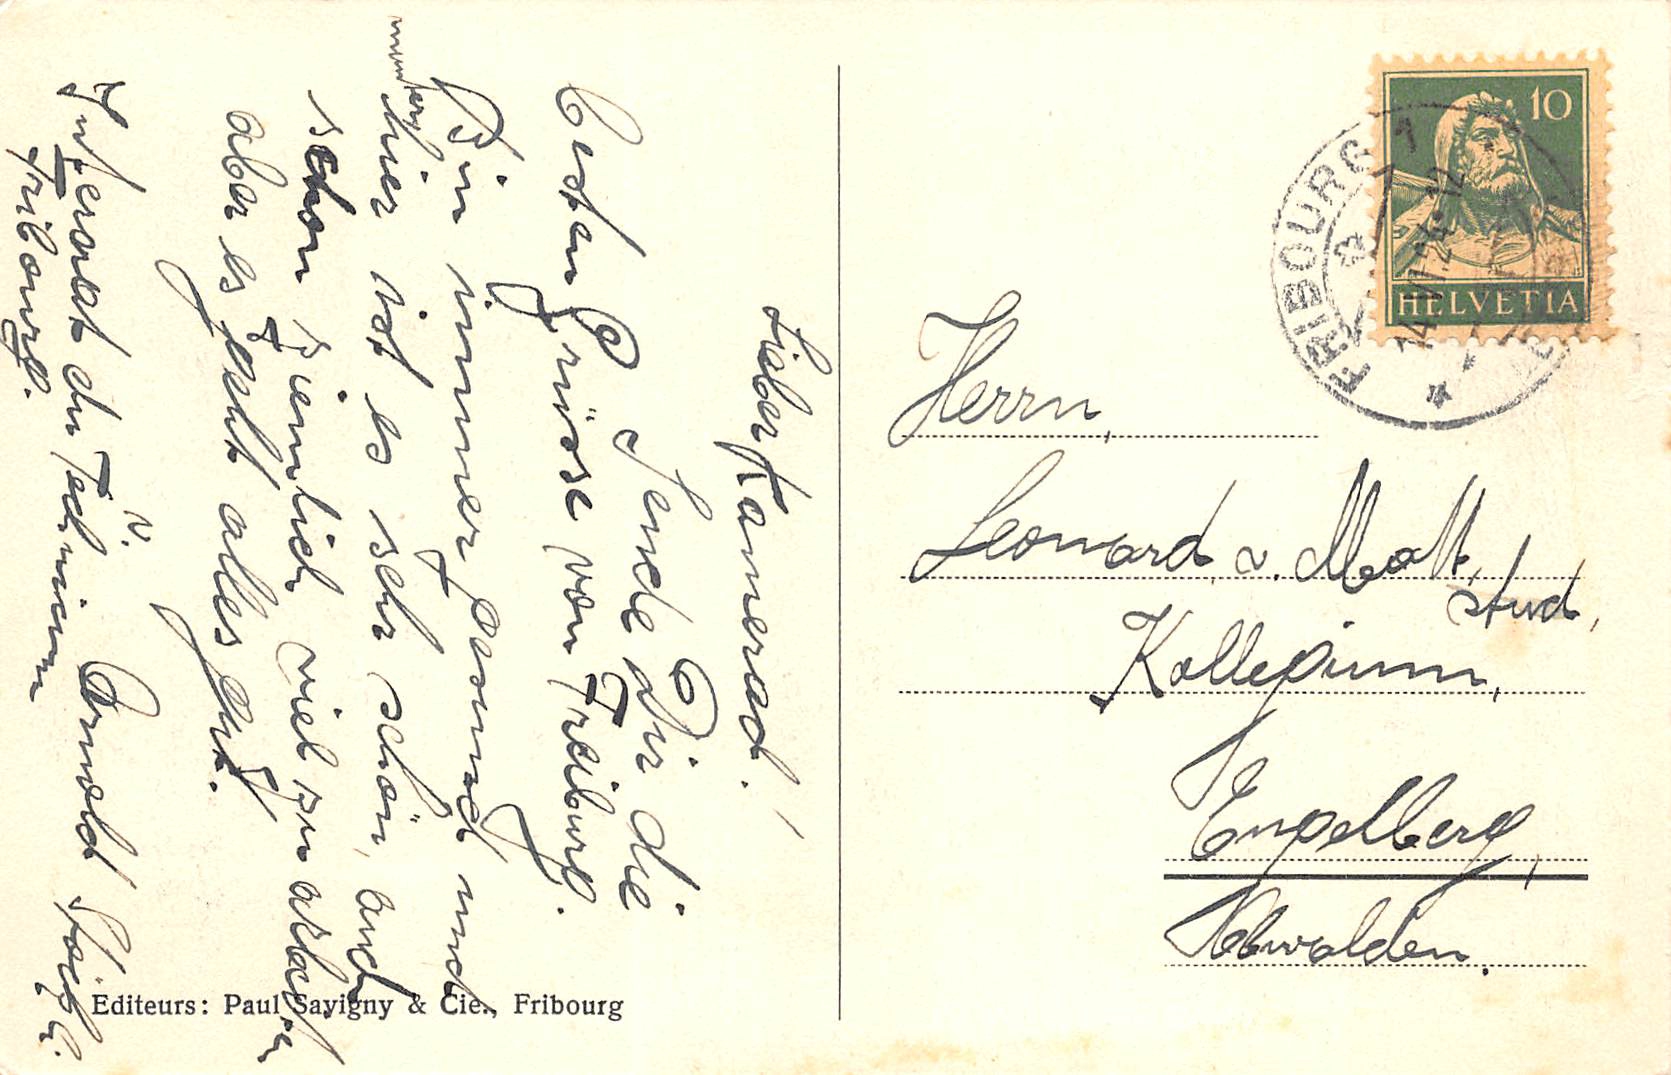 Lieber Kamerad!
Sende Dir die
besten Grüsse von Freiburg.
Bin immer gesund und
hier ist es sehr schön, auch
schon ziemlich viel zu arbeiten
aber es geht alles gut.
Arnold
Internat du Technicum
Fribourg.
Editeurs: Paul Savigny & Cie., Fribourg
10
HELVETIA
FRIBOURG 1
Herrn,
Leonard v. Matt,
stud,
Kollegium,
Engelberg,
Obwalden.